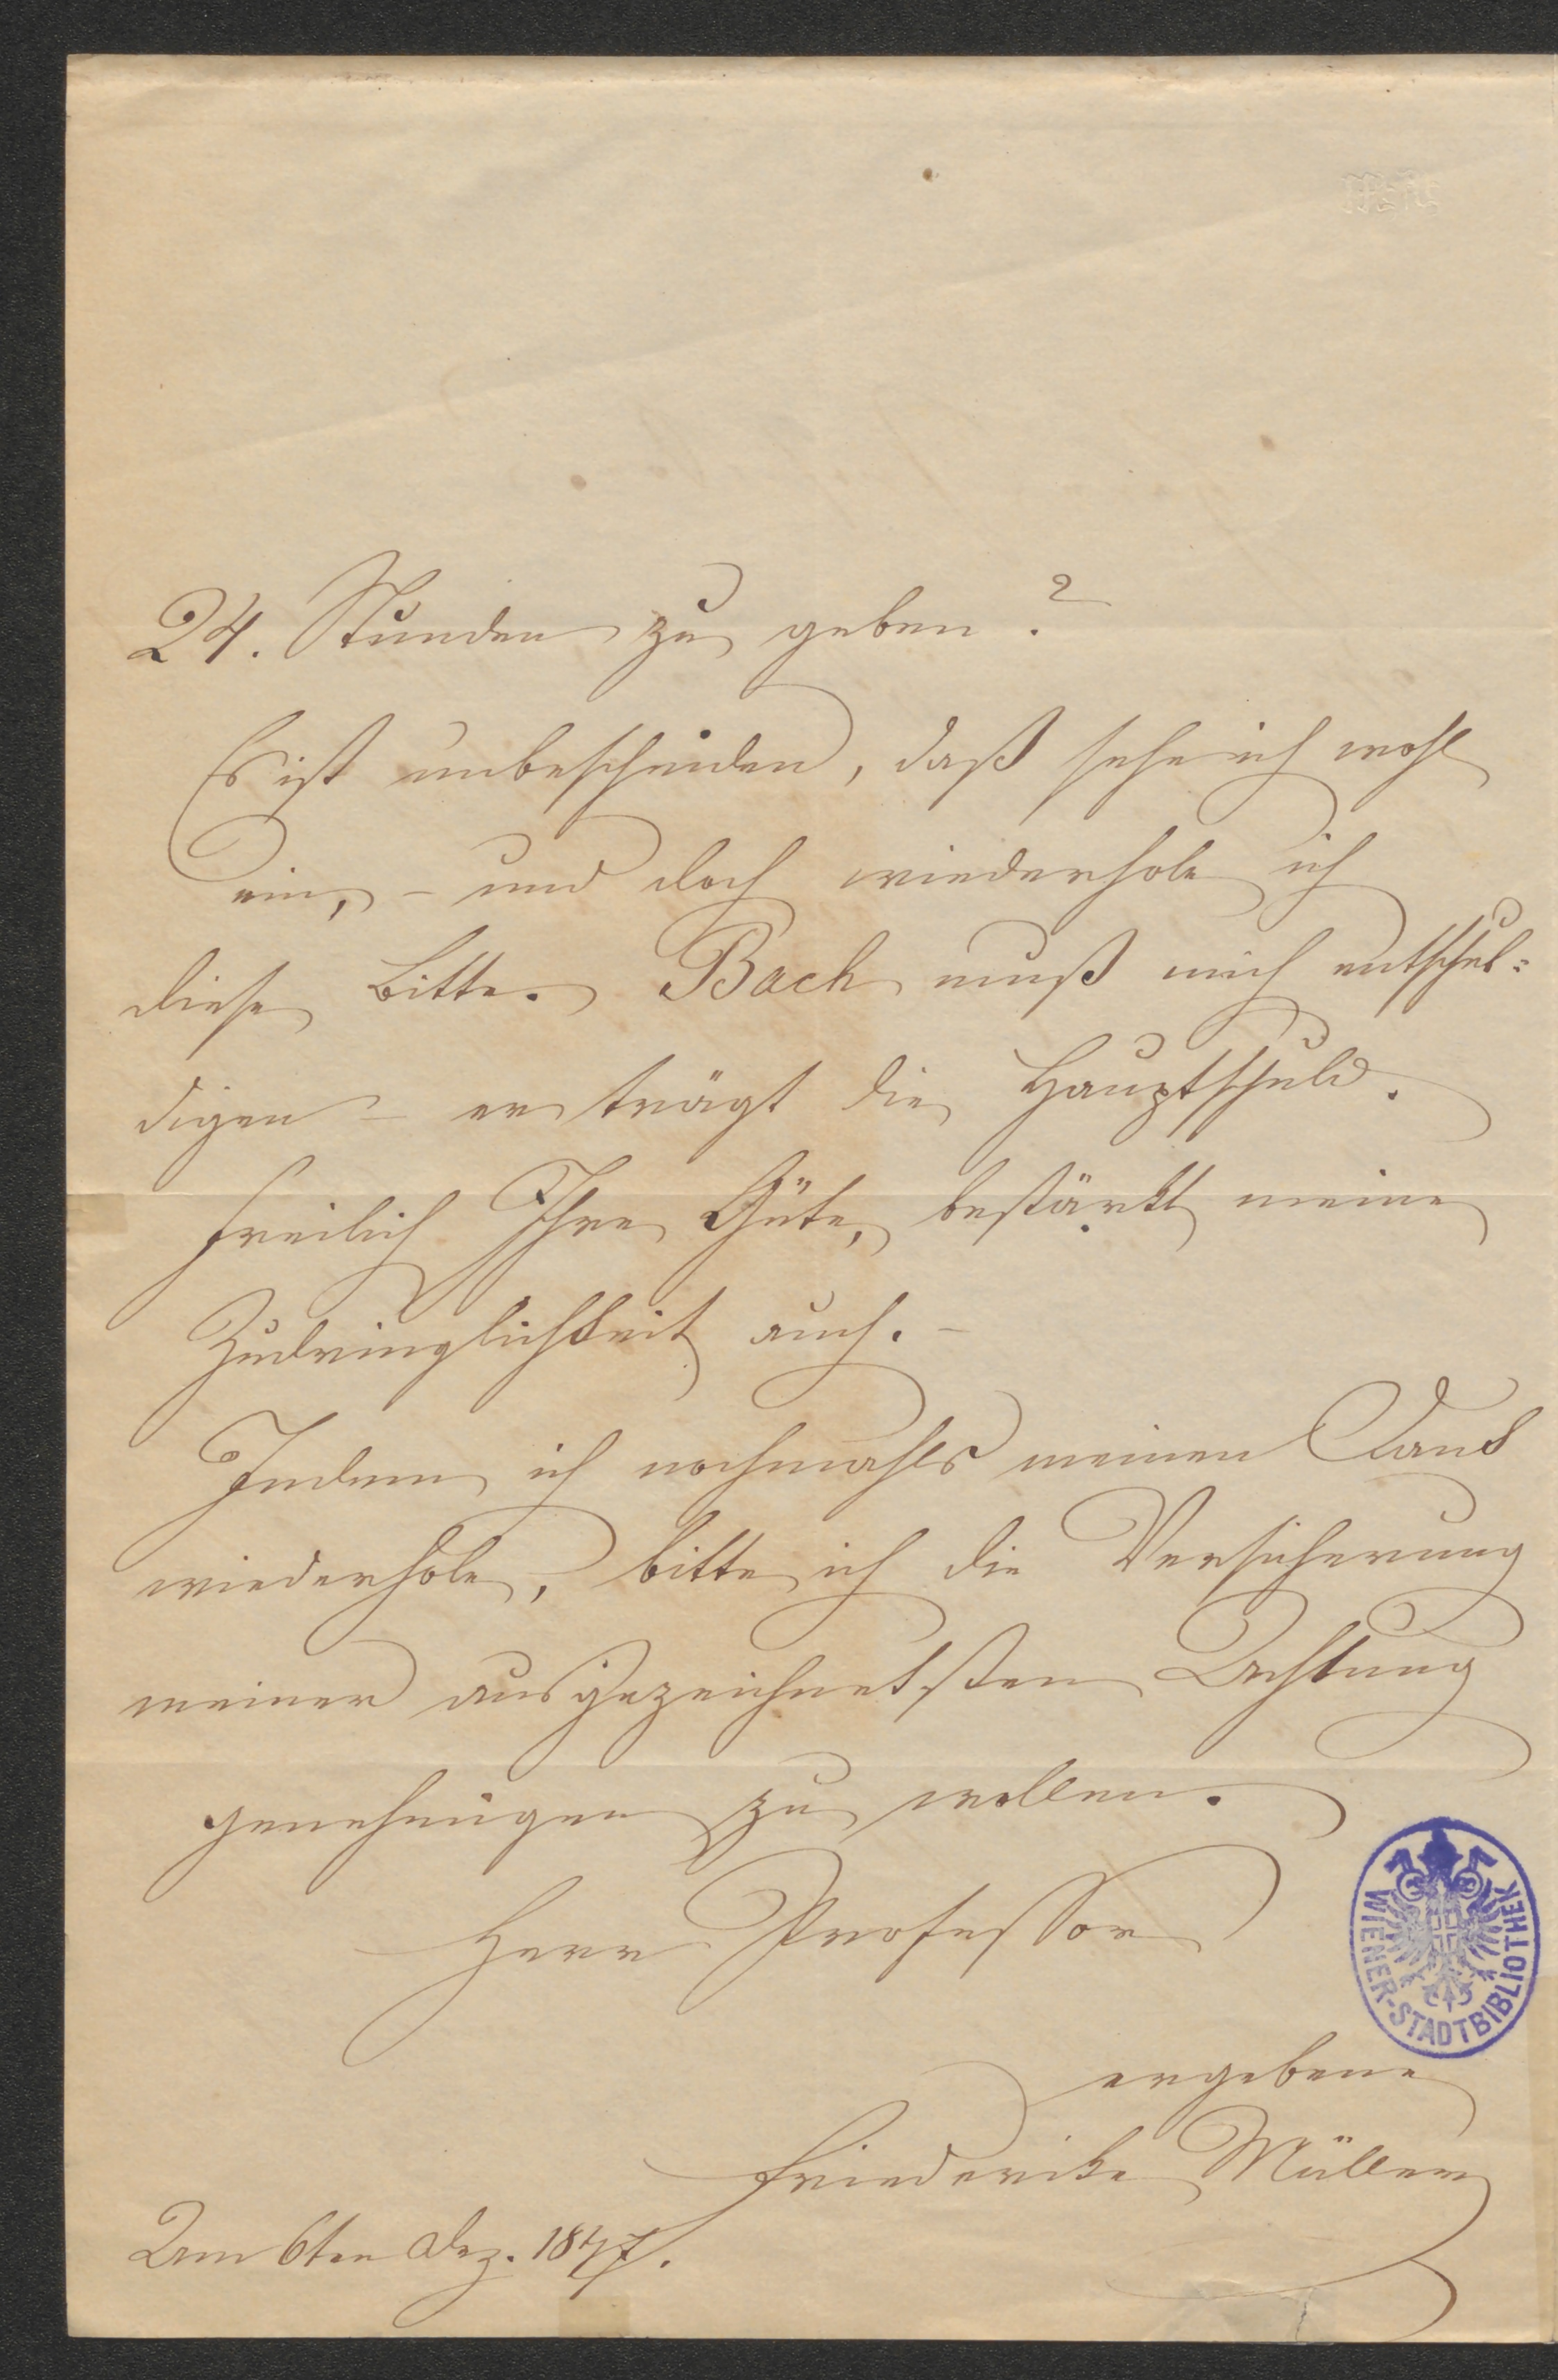 24. Stunden zu geben?
Es ist unbescheiden, daß sehe ich wohl
ein, – und doch wiederhole ich
diese Bitte. Bach muß mich entschul=
digen – er trägt die Hauptschuld.
freilich Ihre Güte, bestärkt meine
Zudringlichkeit auch. –
Indem ich nochmahls meinen Dank
wiederhole, bitte ich die Versicherung
meiner ausgezeichnetsten Achtung
genehmigen zu wollen.
Herr Professor
WIENER-STADTBIBLIOTHEK
ergebene
Friederike Müller
Am 6ten Dez. 1847.